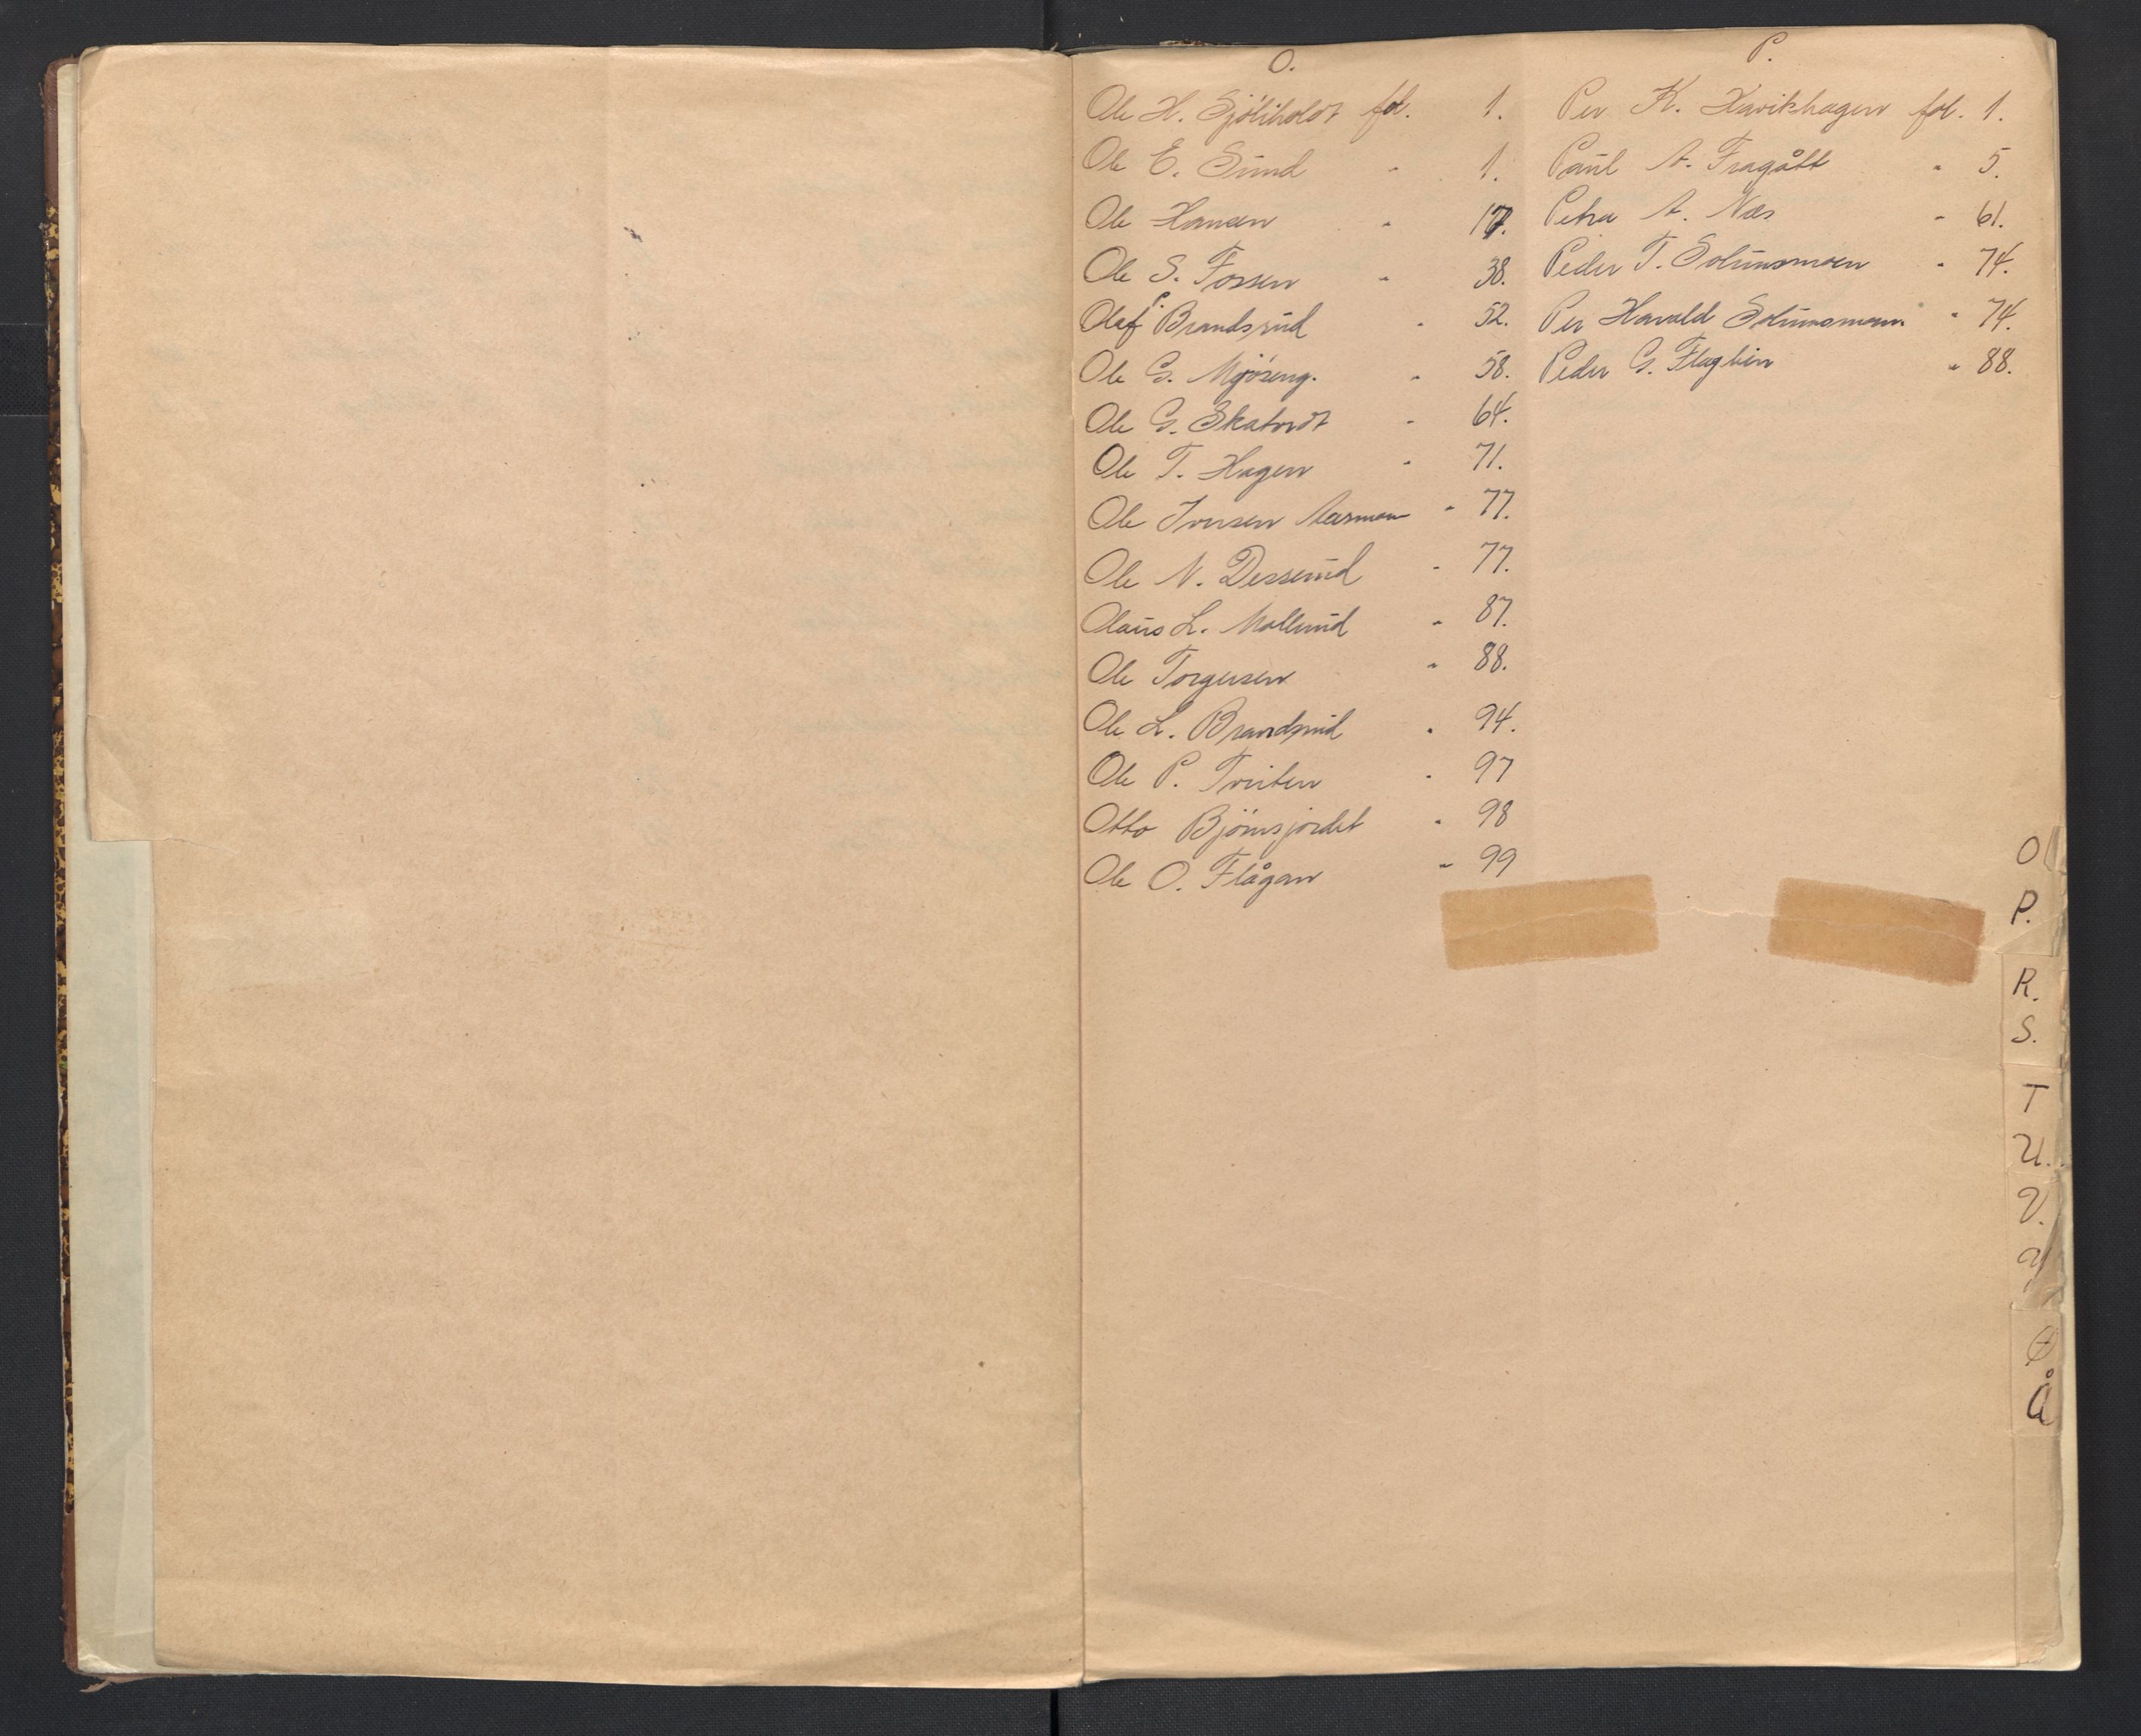 O.
Ole H. Sjöliholdt fol. 1.
Ole E. Sund " 1.
Ole Hansen " 17.
Ole S. Fossen " 38.
Olaf P. Brandsrud " 52.
Ole G. Mjöseng. " 58.
Ole G. Skatvedt " 64.
Ole T. Hagen " 71.
Ole Iversen Aasmoen " 77.
Ole N. Desserud " 77.
Olaus L. Mollerud " 87.
Ole Torgersen " 88.
Ole L. Brandsrud " 94.
Ole P. Tveiten " 97
Otto Björnsjordet " 98
Ole O. Flågan " 99
P.
Per K. Kavikhagen fol. 1.
Paul A. Fragått " 5.
Petra A. Næs " 61.
Peder T. Solumsmoen " 74.
Per Harald Solumsmoen " 74.
Peder G. Flaglien " 88.
O
P.
R.
S.
T
U.
V.
Y
Ø
Å